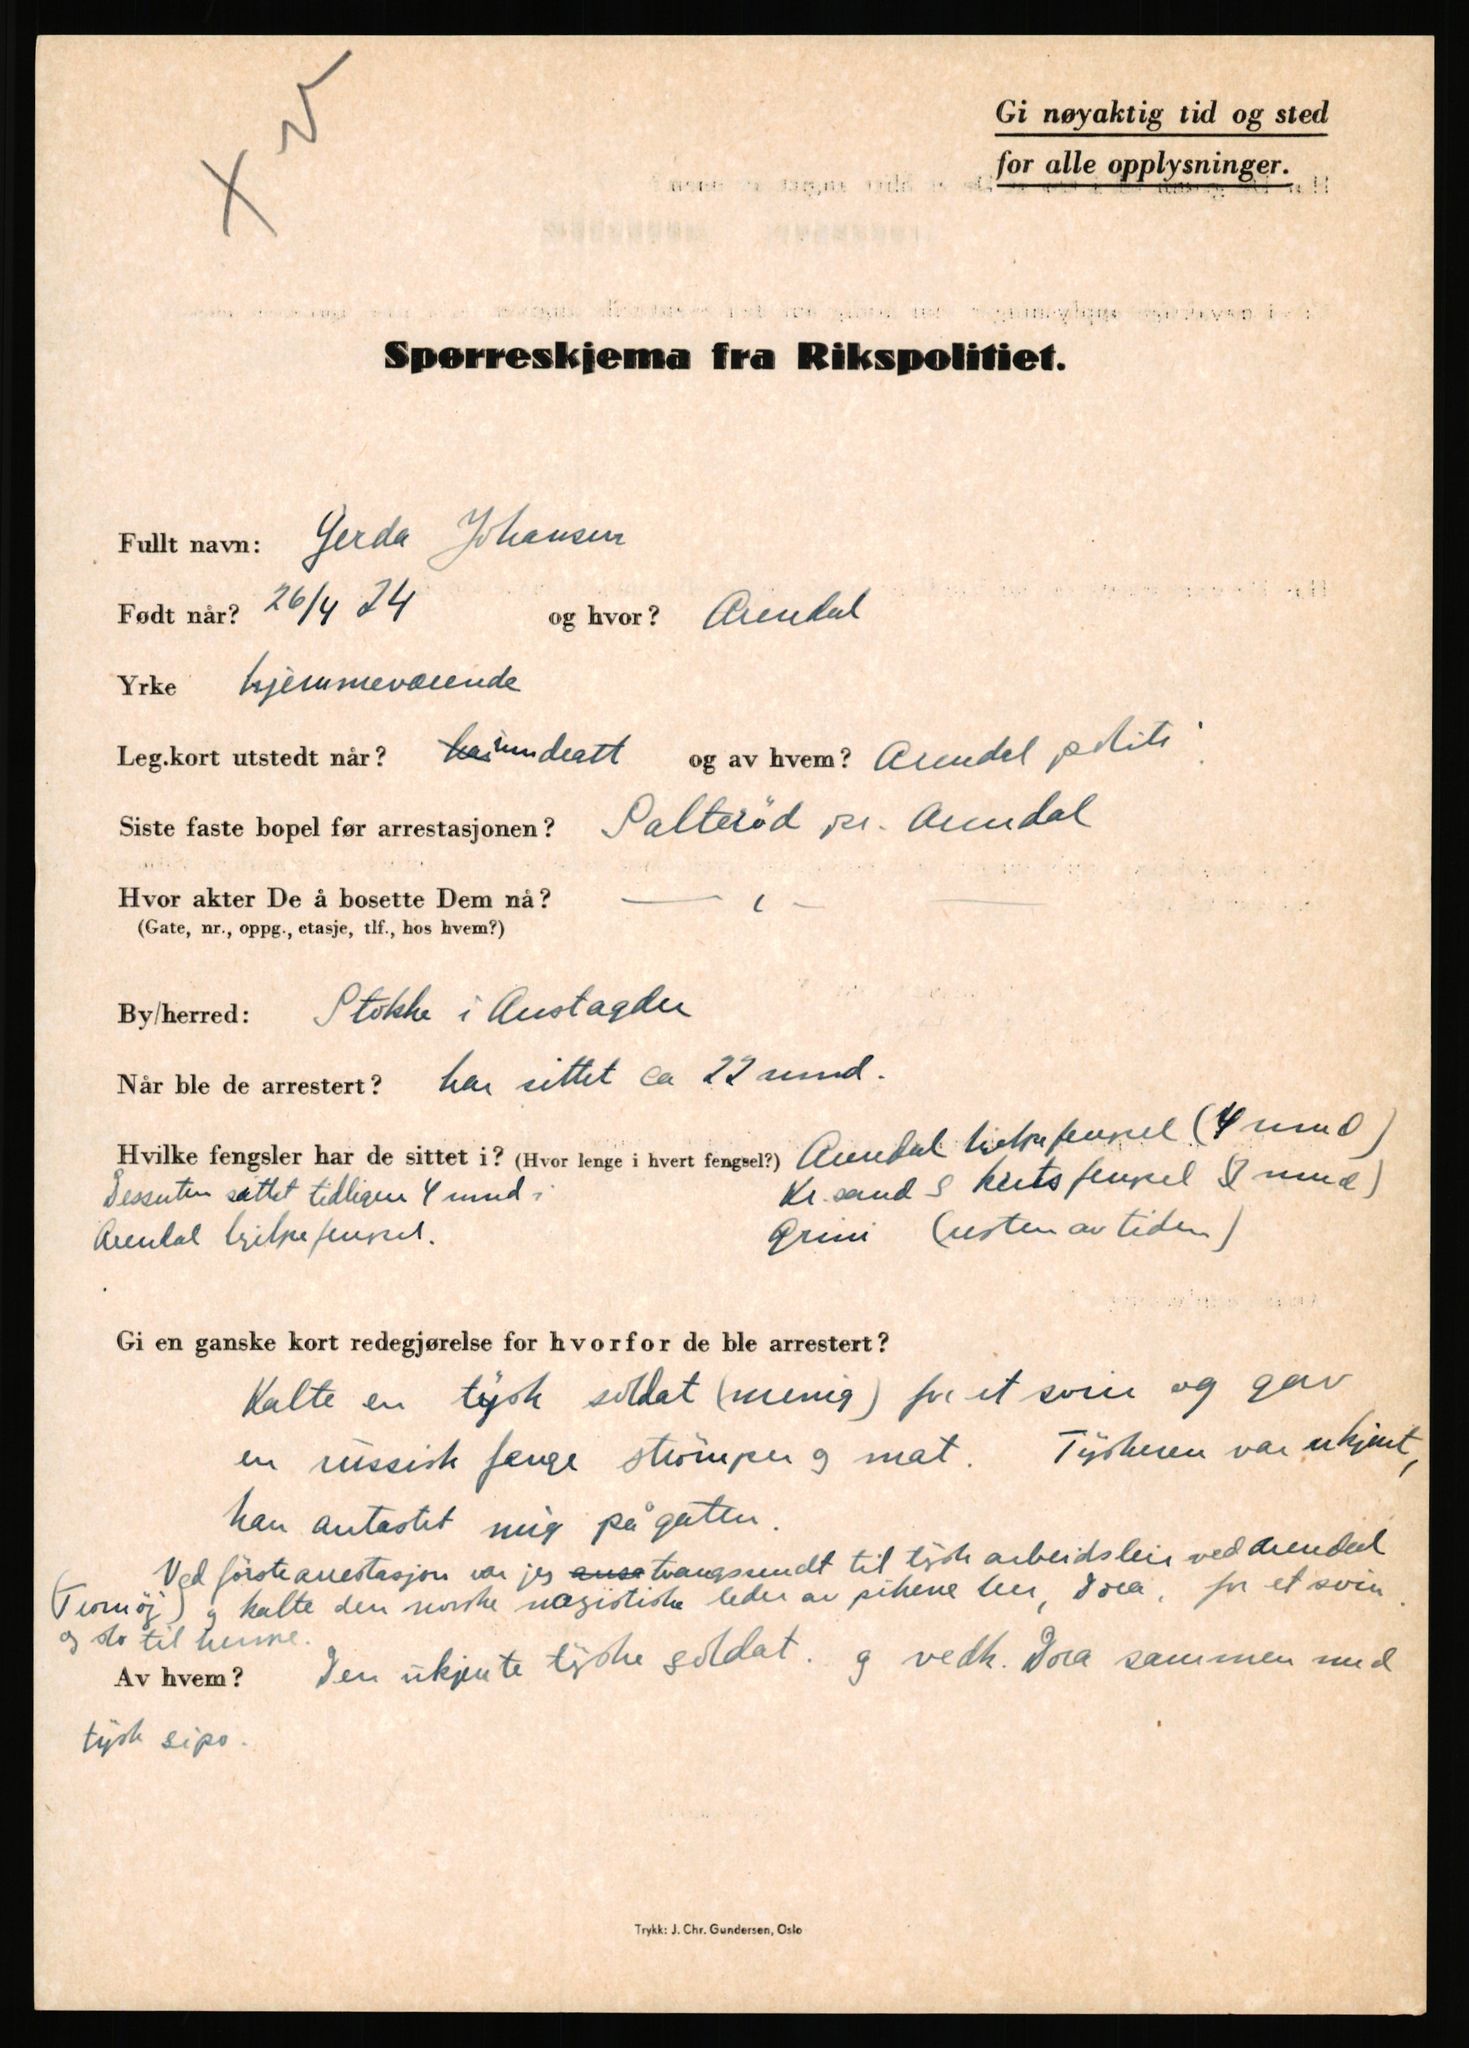 Gi nøyaktig tid og sted
for alle opplysninger.
Spørreskjema fra Rikspolitiet.
Fullt navn: Gerda Johansen
Født når? 26/4 24 og hvor? Arendal
Yrke hjemmeværende
Leg.kort utstedt når? inndratt og av hvem? Arendal politi
Siste faste bopel før arrestasjonen? Salterød pr. Arendal
Hvor akter De å bosette Dem nå? — " —
(Gate, nr., oppg., etasje, tlf., hos hvem?)
By/herred: Stokke i Austagder
Når ble de arrestert? har sittet ca 22 mnd.
Hvilke fengsler har de sittet i? (Hvor lenge i hvert fengsel?) Arendal hjelpefengsel (4 mnd)
Dessuten sittet tidligere 4 mnd i Kr.sand kretsfengsel 8 mnd)
Arendal hjelpefengsel. Grini (resten av tiden)
Gi en ganske kort redegjørelse for hvorfor de ble arrestert?
Kalte en tysk soldat (menig) for et svin og gav
en russisk fange strömper og mat. Tyskeren var ukjent,
han antastet mig på gaten.
Ved förste arrestasjon var jeg tvangssendt til tysk arbeidsleir ved Arendal
(Tromöy) og kalte den norske nazistiske leder av pikene her, Dora, for et svin
og slo til henne.
Av hvem? Den ukjente tyske soldat. og vedk. Dora sammen med
tysk sipo.
Trykk: J. Chr. Gundersen, Oslo